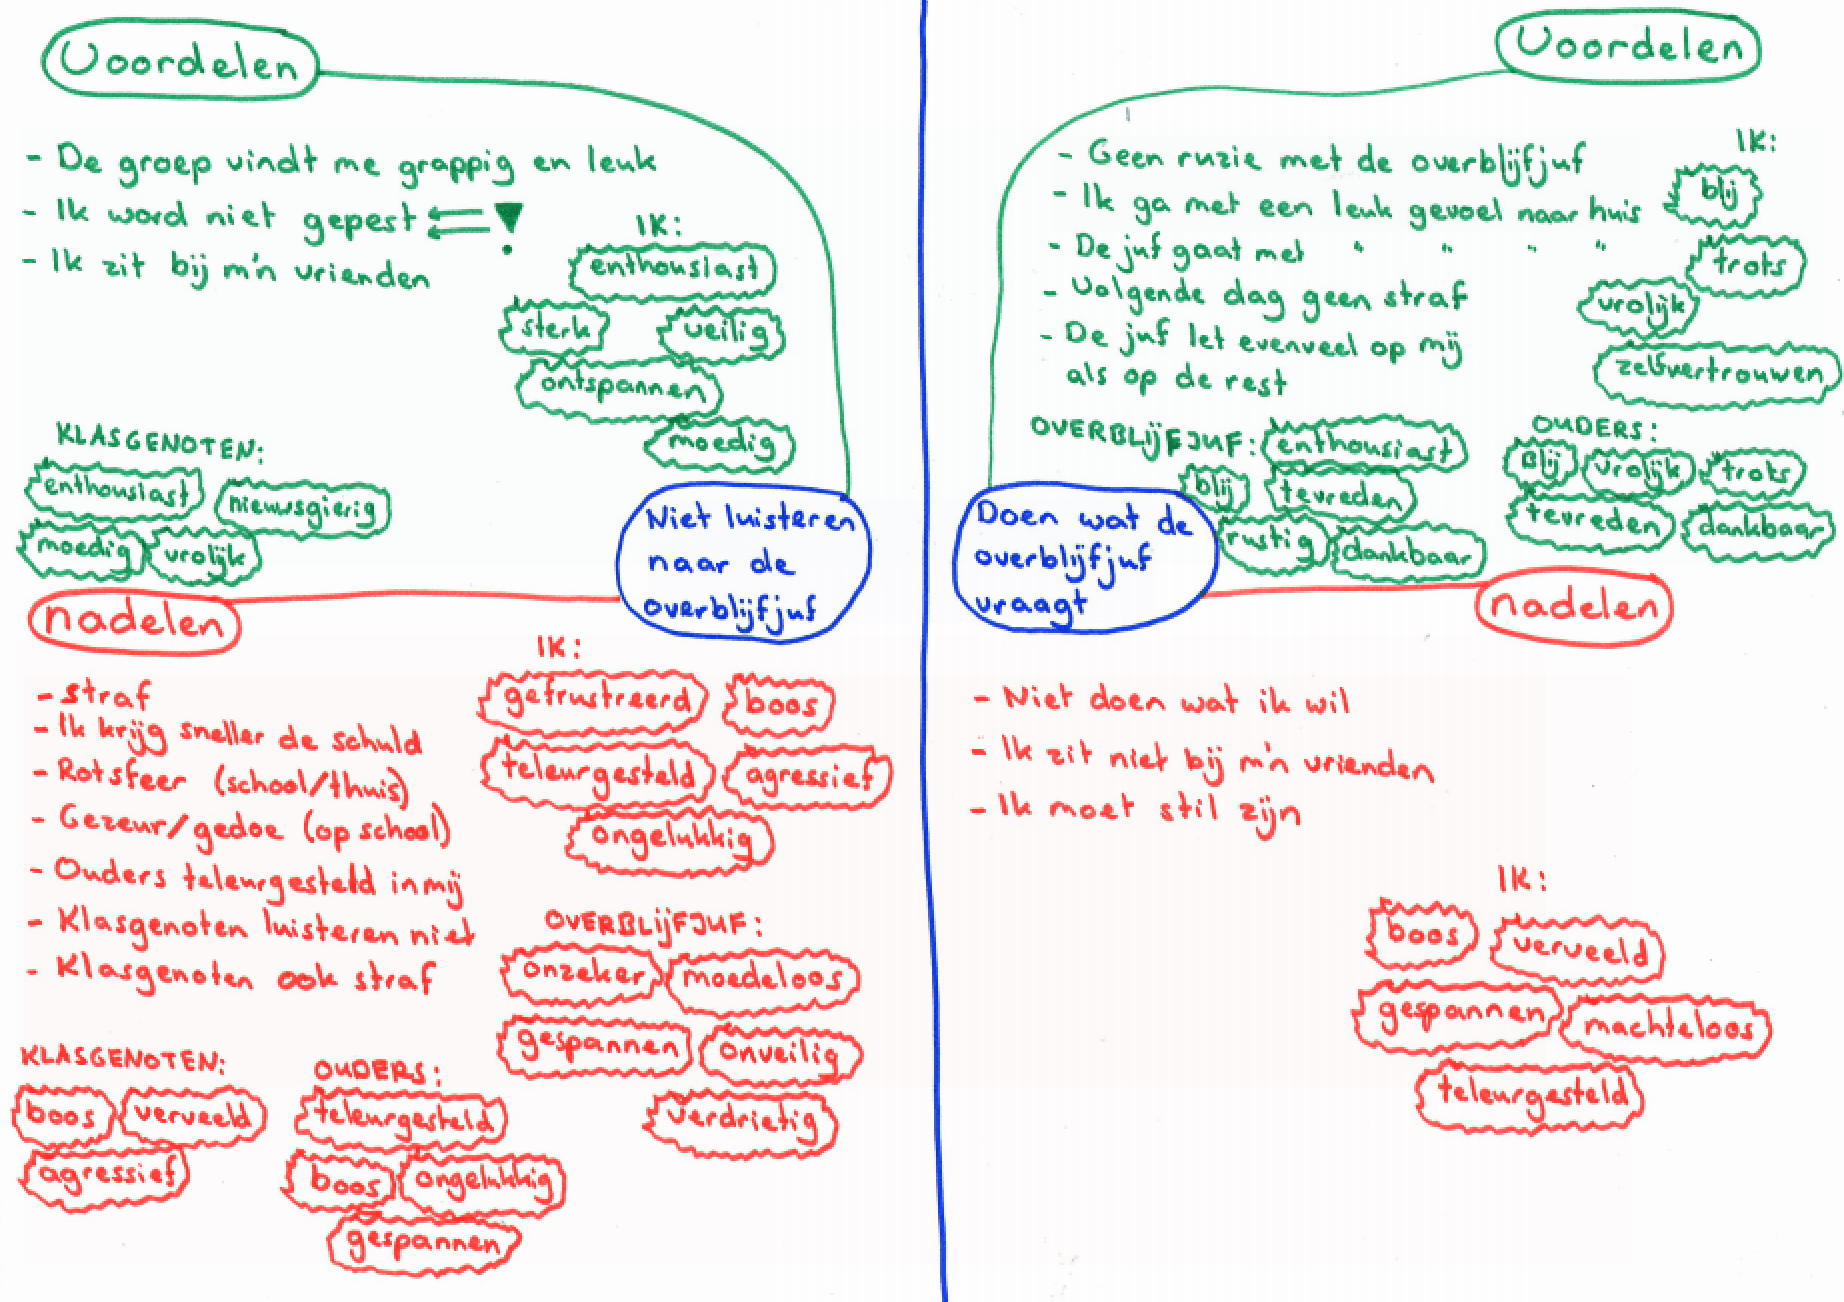 Voordelen
- De groep vindt me grappig en leuk
- Ik word niet gepest
- Ik zit bij m'n vrienden
IK:
enthousiast
sterk veilig
ontspannen
moedig
KLASGENOTEN:
enthousiast nieuwsgierig
moedig vrolijk
Niet luisteren
naar de
overblijfjuf
nadelen
- straf
- Ik krijg sneller de schuld
- Rotsfeer (school/thuis)
- Gezeur/gedoe (op school)
- Ouders teleurgesteld in mij
- Klasgenoten luisteren niet
- Klasgenoten ook straf
IK:
gefrustreerd boos
teleurgesteld agressief
ongelukkig
OVERBLIJFJUF:
onzeker moedeloos
gespannen onveilig
verdrietig
KLASGENOTEN:
boos verveeld
agressief
OUDERS:
teleurgesteld
boos ongelukkig
gespannen
Voordelen
- Geen ruzie met de overblijfjuf
- Ik ga met een leuk gevoel naar huis
- De juf gaat met " " " "
- Volgende dag geen straf
- De juf let evenveel op mij
als op de rest
IK:
blij
trots
vrolijk
zelfvertrouwen
OVERBLIJFJUF: enthousiast
blij tevreden
rustig dankbaar
OUDERS:
Blij vrolijk trots
tevreden dankbaar
Doen wat de
overblijfjuf
vraagt
nadelen
- Niet doen wat ik wil
- Ik zit niet bij m'n vrienden
- Ik moet stil zijn
IK:
boos verveeld
gespannen machteloos
teleurgesteld